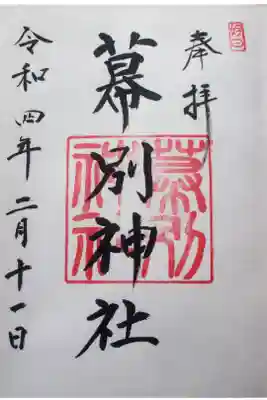 奉拝
幕別神社
幕別
神社
令和四年二月十一日